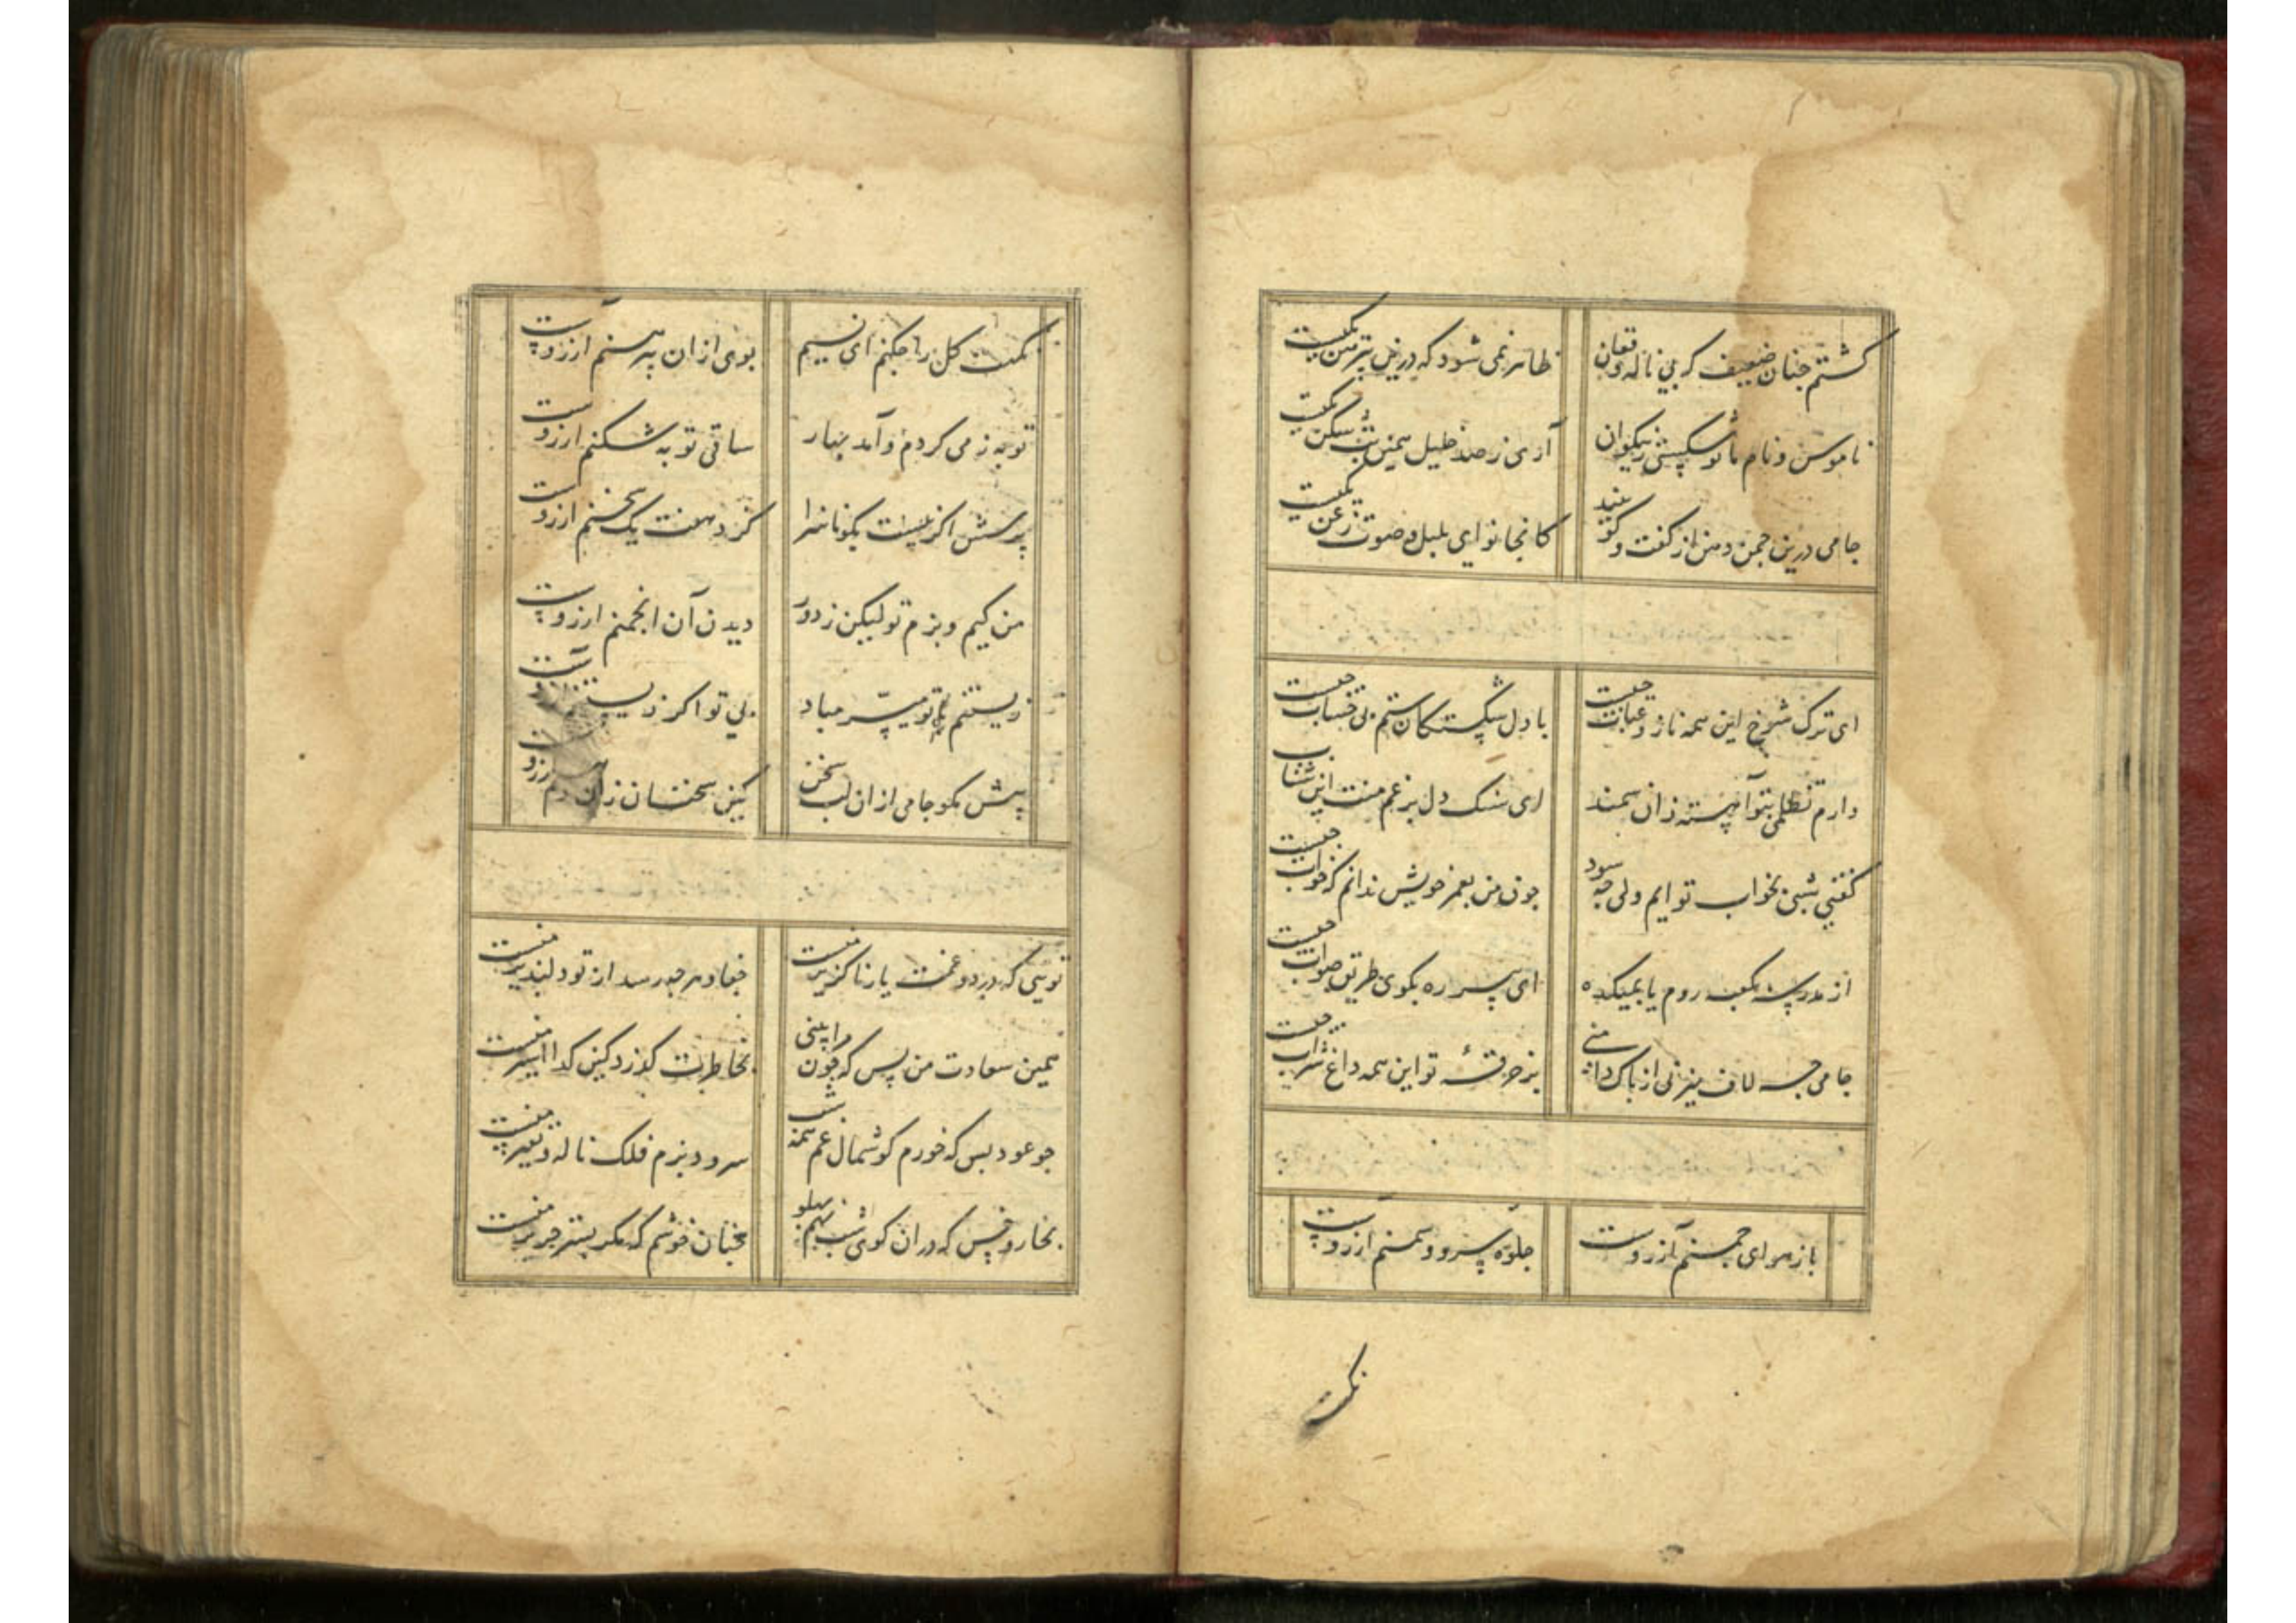 گشتم چنان ضعیف که بی ناله و فغان
ظاهر نمی شود که درین پیرهن یکیست
ناموس و نام ما تو شکستی ز نیکوان
آری ز صد خلیل همین بت شکن یکیست
جامی درین چمن دهن از گفت و گو ببند
کانجا نوای بلبل و صوت زغن یکیست
ای ترک شوخ این همه ناز و عتاب چیست
با دل شکستگان ستم بی حساب چیست
دارم تظلمی بتو آهسته ران سمند
ای سنگ دل برغم منت این شتاب چیست
گفتی شبی بخواب تو آیم ولی چه سود
چون من بعمر خویش ندانم که خواب چیست
از مدرسه بکعبه روم یا بمیکده
ای پیر ره بگوی طریق صواب چیست
جامی چه لاف میزنی از پاک دامنی
بر خرقهٔ تو این همه داغ شراب چیست
باز هوای چمنم آرزوست
جلوه سرو و سمنم آرزوست
نکهت
نکهت گل را چکنم ای نسیم
بوی از ان پیرهنم آرزوست
توبه ز می کردم و آمد بهار
ساقی توبه شکنم آرزوست
پرسش اگر نیست بگو ناسزا
کز دهنت یک سخنم آرزوست
من کیم و بزم تو لیکن ز دور
دیدن آن انجمنم آرزوست
زیستنم بی تو میسر مباد
بی تو اگر زیستنم آرزوست
بیش مگو جامی از ان لب سخن
کین سخنان زان دهنم آرزوست
تویی که درد و غمت یار ناگزیر منست
جفا و هر چه رسد از تو دلپذیر منست
همین سعادت من بس که چون مرا بینی
بخاطرت گذرد کین گدا اسیر منست
چو عود بس که خورم گوشمال غم همه شب
سرود بزم فلک ناله و نفیر منست
بخار و خس که در ان کوی شب نهم پهلو
چنان خوشم که مگر بستر حریر منست